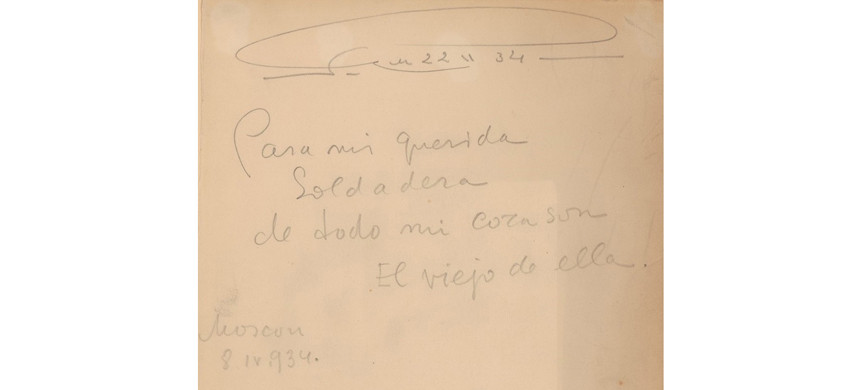 22 VI 34
Para mi querida
Soldadera
de todo mi corason
El viejo de ella.
Moscou
8 IV 934.